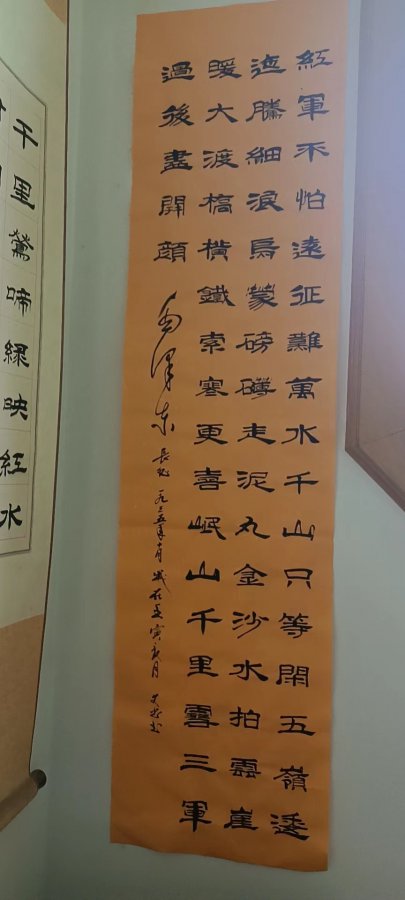 紅軍不怕遠征難萬水千山只等閑五嶺逶
迤騰細浪烏蒙磅礴走泥丸金沙水拍雲崖
暖大渡橋橫鐵索寒更喜岷山千里雪三軍
過後盡開顔
毛澤東 長征 一九三五年十月 歲在壬寅 月 书
千里鶯啼緑映紅水